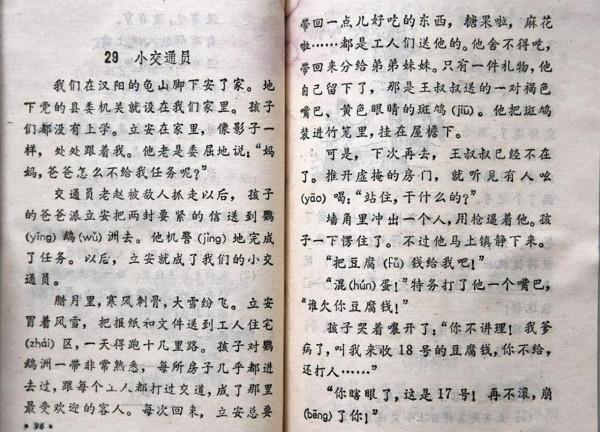 29 小交通员
我们在汉阳的龟山脚下安了家。地
下党的县委机关就设在我们家里。孩子
们都没有上学。立安在家里，像影子一
样，处处跟着我。他老是委屈地说：“妈
妈，爸爸怎么不给我任务呢？”
交通员老赵被敌人抓走以后，孩子
的爸爸派立安把两封要紧的信送到鹦
(yīng)鹉(wǔ)洲去。他机警(jǐng)地完成
了任务。以后，立安就成了我们的小交
通员。
腊月里，寒风刺骨，大雪纷飞。立安
冒着风雪，把报纸和文件送到工人住宅
(zhái)区，一天得跑十几里路。孩子对鹦
鹉洲一带非常熟悉，每所房子几乎都进
去过，跟每个工人都打过交道，成了那里
最受欢迎的客人。每次回来，立安总要
·96·
带回一点儿好吃的东西，糖果啦，麻花
啦……都是工人们送他的。他舍不得吃，
带回来分给弟弟妹妹。只有一件礼物，他
自己留下了，那是王叔叔送的一对褐色
嘴巴、黄色眼睛的斑鸠(jiū)。他把斑鸠
装进竹笼里，挂在屋檐下。
可是，下次再去，王叔叔已经不在
了。推开虚掩的房门，就听见有人吆
(yāo)喝：“站住，干什么的？”
墙角里冲出一个人，用枪逼着他。孩
子一下愣住了。不过他马上镇静下来。
“把豆腐(fǔ)钱给我吧！”
“混(hún)蛋！”特务打了他一个嘴巴，
“谁欠你豆腐钱！”
孩子哭着嚷开了：“你不讲理！我爹
病了，叫我来收18号的豆腐钱，你不给，
还打人……”
“你瞎眼了，这是17号！再不滚，崩
(bēng)了你！”